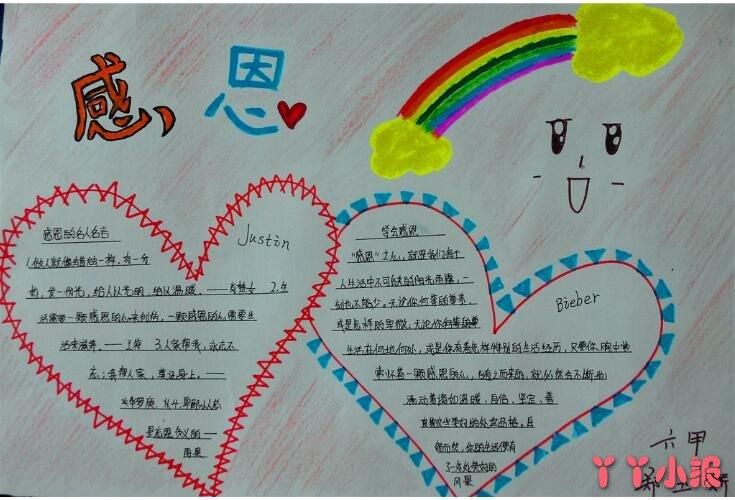 感恩
感恩的名人名言
Justin
1.做人就像蜡烛一样，有一分
热，发一份光，给人以光明，给以温暖。——肖楚女 2.生
活需要一颗感恩的心来创造，一颗感恩的心需要生
活来滋养。——王符 3.人家帮我，永志不
忘；我帮人家，莫记心上。——
华罗庚
忘恩负义的——
雨果
学会感恩
"感恩"之心，就是我们每个
人生活中不可或缺的阳光雨露，一
刻也不能少。无论你何等的尊贵，
或是怎样的卑微；无论你
生活在何地何处，或是你有着怎样特别的生活经历，只要你胸中常
常怀着一颗感恩的心，随之而来的，就必然会不断地
涌动着诸如温暖、自信、坚定、善
良等这些美好的处世品格。自
然而然，你的生活便有
了一处处美的
风景
Bieber
六甲
丫丫小派